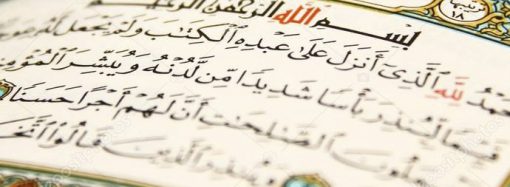 ١٨
بِسْمِ اللَّهِ الرَّحْمَٰنِ الرَّحِيمِ
حَمْدُ لِلَّهِ الَّذِي أَنزَلَ عَلَىٰ عَبْدِهِ الْكِتَٰبَ وَلَمْ يَجْعَل لَّهُ
قَيِّمًا لِّيُنذِرَ بَأْسًا شَدِيدًا مِّن لَّدُنْهُ وَيُبَشِّرَ الْمُؤْمِ
ملُونَ الصَّٰلِحَٰتِ أَنَّ لَهُمْ أَجْرًا حَسَنًا
وَيُنذِرَ الَّذِينَ قَالُوا اتَّخَ